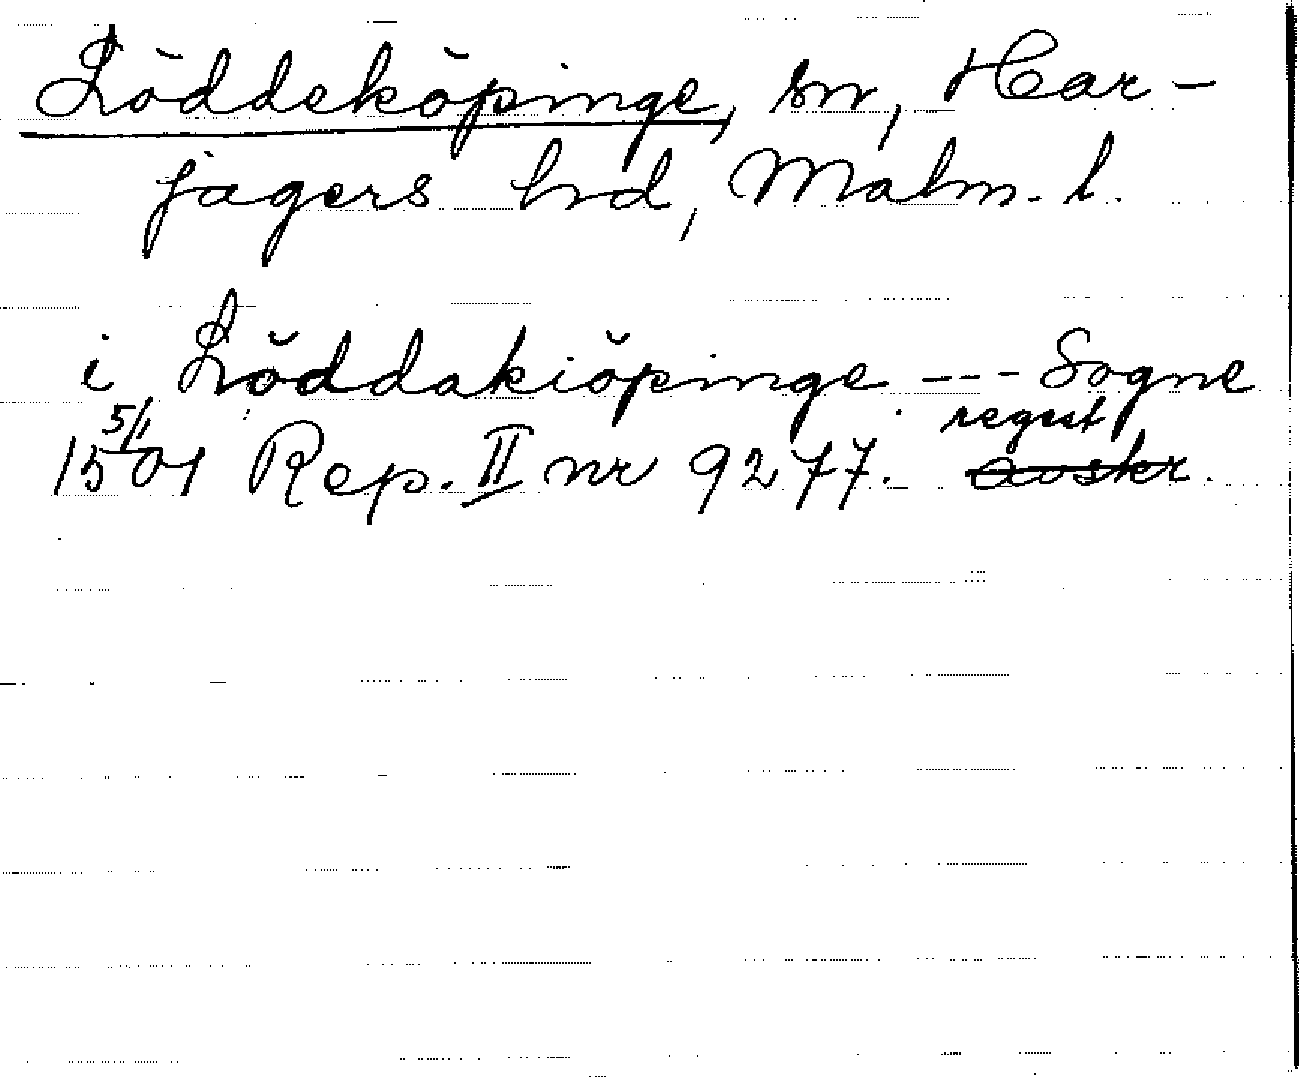 Löddeköpinge, sn, Har-
jagers hd, Malm. l.
i Löddakiöpinge --- Sogne
5/1 regest
1501 Rep. II nr 9277. avskr.